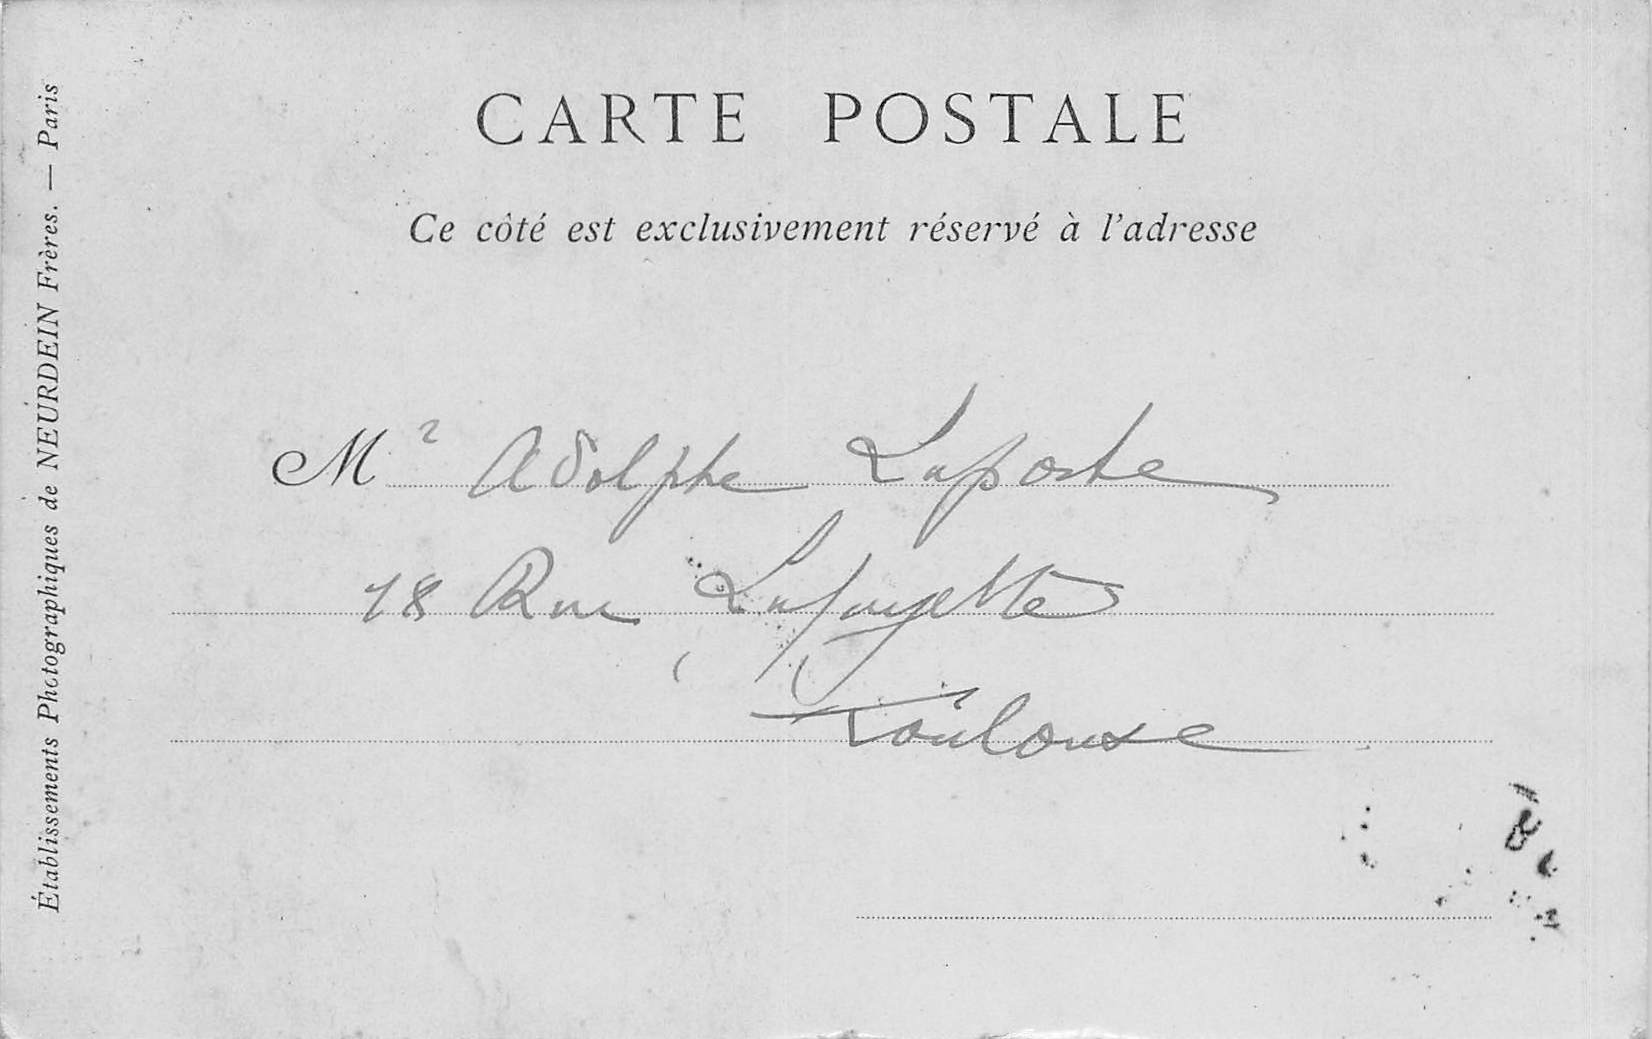 CARTE POSTALE
Ce côté est exclusivement réservé à l'adresse
Mr Adolphe Laporte
18 Rue Lafayette
Toulouse
Établissements Photographiques de NEURDEIN Frères. — Paris